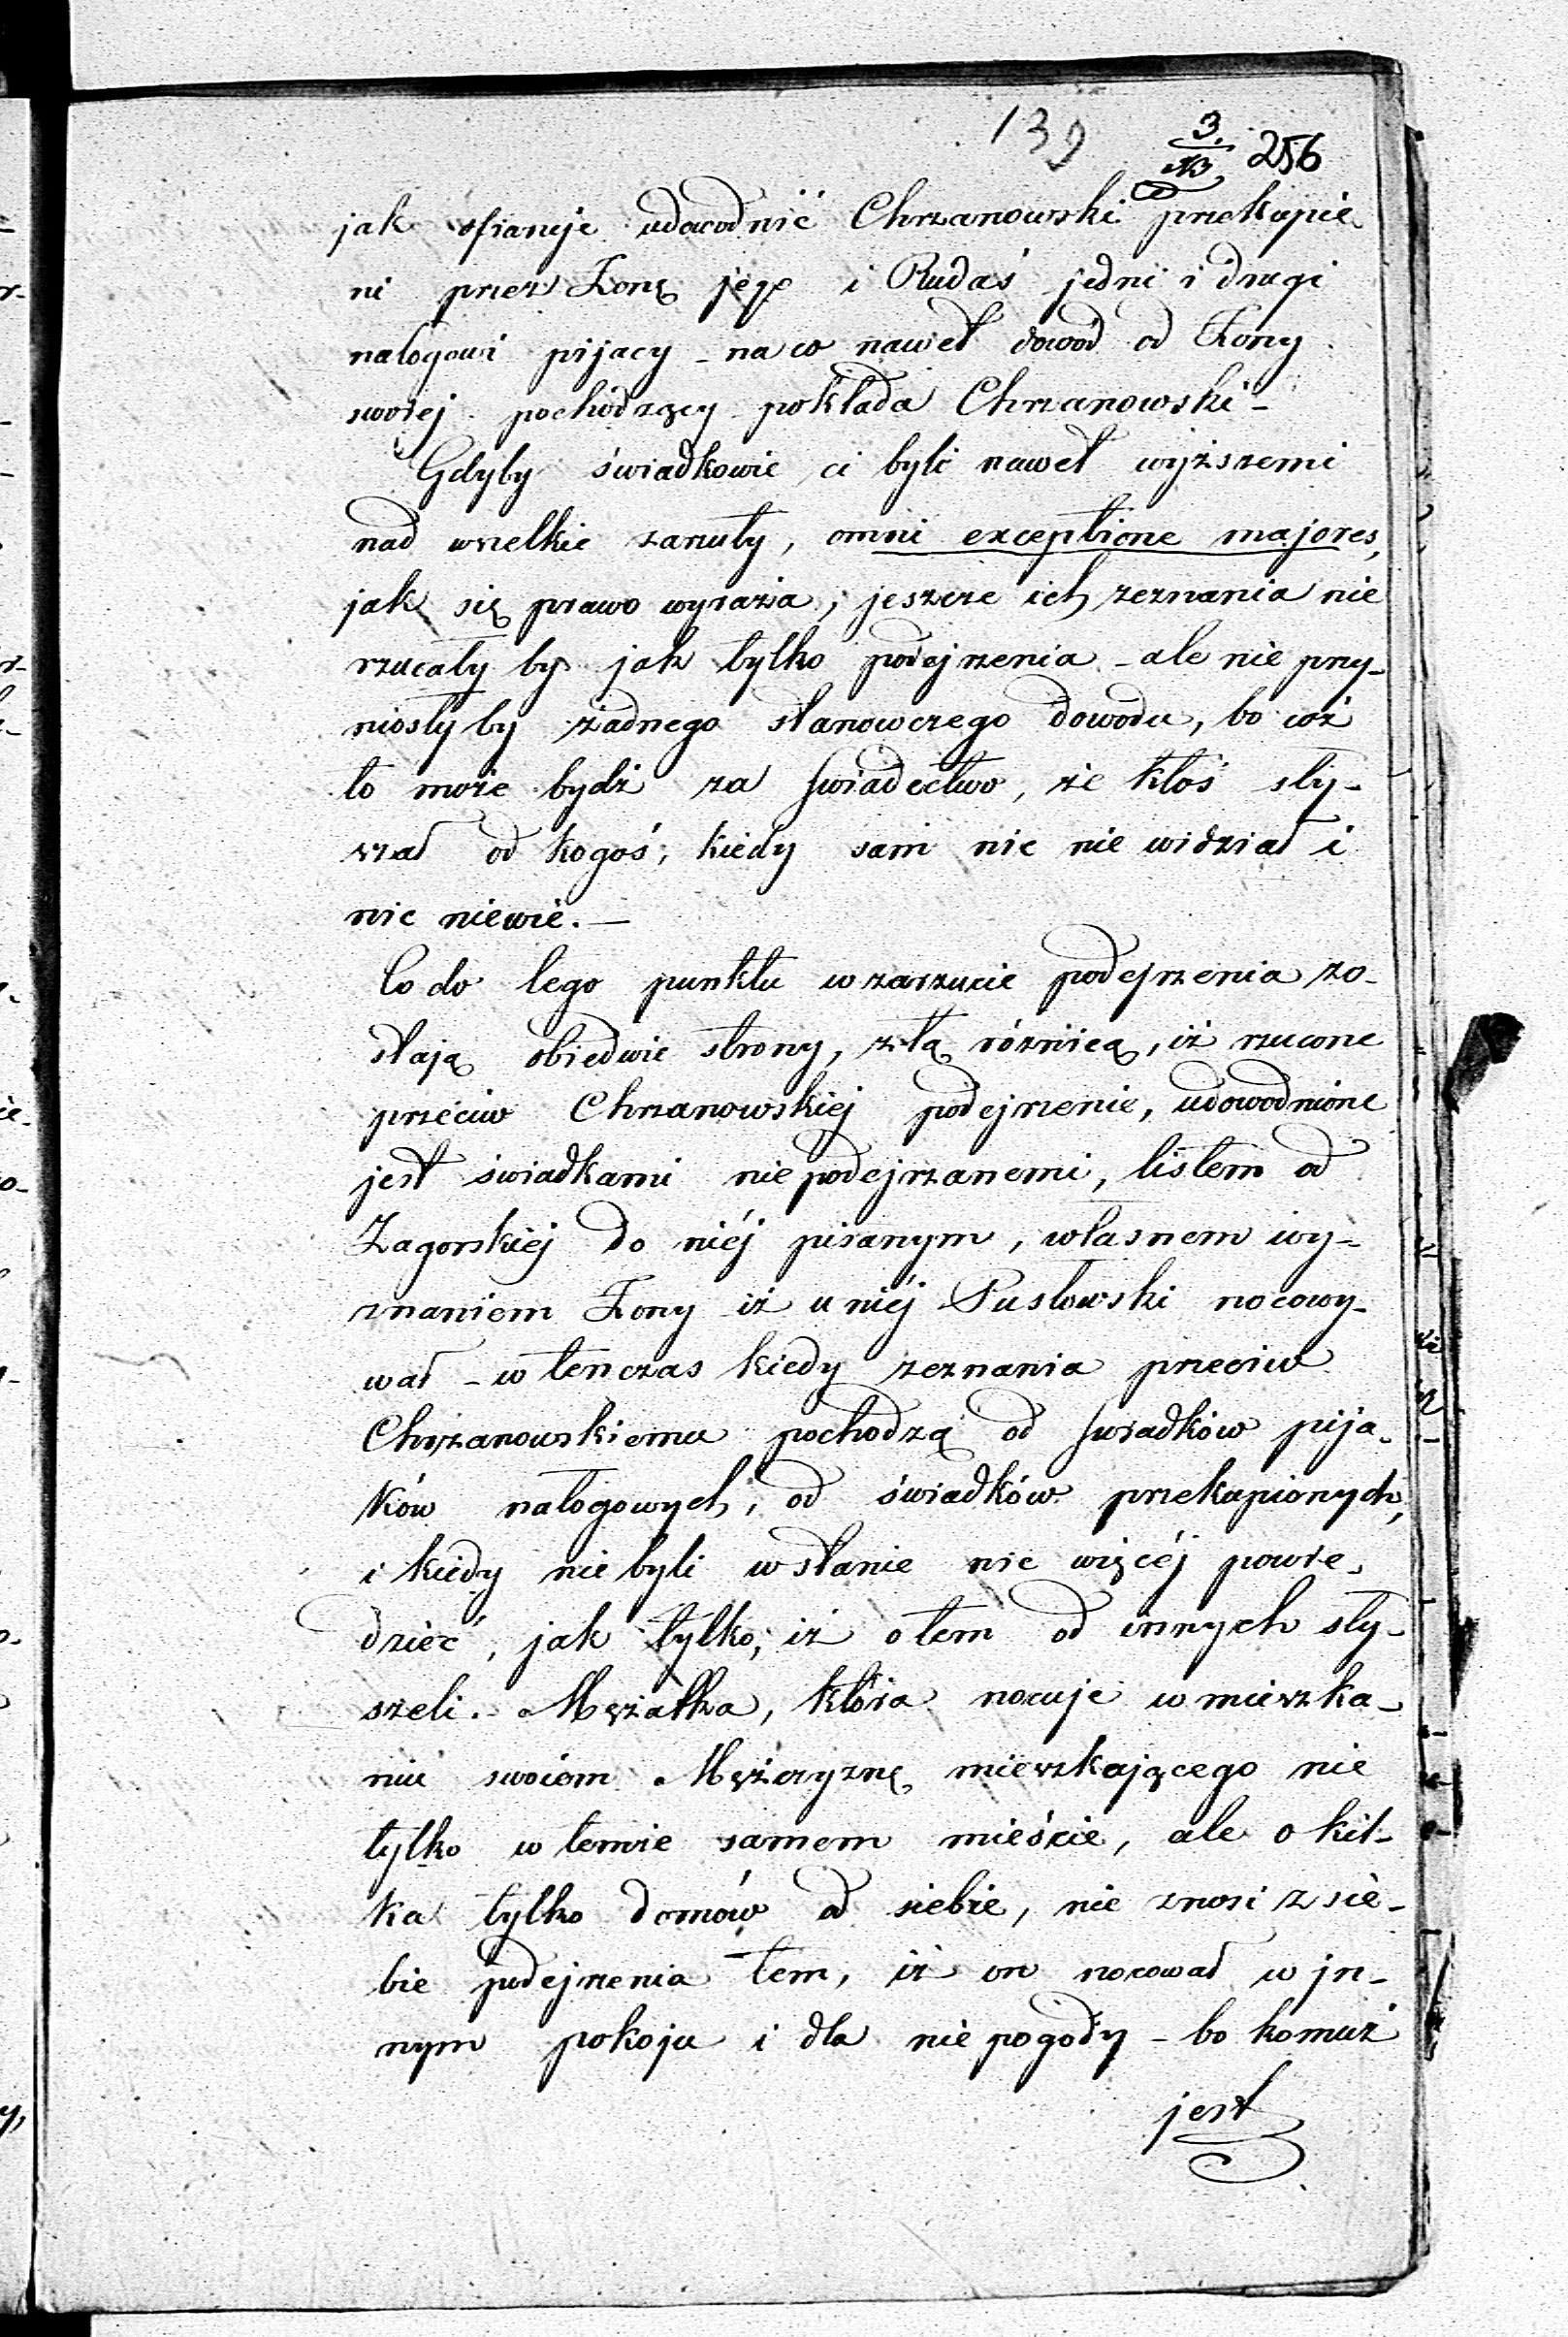 139 3. 256
jak ofiaruje udowodnić Chrzanowski przekupie
ni przez Żonę jego i Rudaś jedni i drugi
nałogowi pijacy – na co nawet dowód od Żony
swojej pochodzący pokłada Chrzanowski –
Gdyby świadkowie ci byli nawet wyższemi
nad wszelkie zarzuty, omni exceptione majores,
jak się prawo wyraża, jeszcze ich zeznania nie
rzucały by jak tylko podejrzenia – ale nie przy-
niosły by żadnego stanowczego dowodu, bo coż
to może bydź za świadectwo, że ktoś sły-
szał od kogoś, kiedy sam nic nie widział i
nic niewie. –
Co do tego punktu w zarzucie podejrzenia zo-
stają obiedwie strony, z tą różnicą, iż rzucone
przeciw Chrzanowskiej podejrzenie, udowodnione
jest świadkami nie podejrzanemi, listem od
Zagorskiéj do niéj pisanym, własnem wy-
znaniem Żony iż u niéj Pusłowski nocowy-
wał – w tenczas kiedy zeznania przeciw
Chrzanowskiemu pochodzą od świadków pija-
ków nałogowych, od świadków przekupionych,
i kiedy nie byli w stanie nic więcéj powie-
dzieć, jak tylko, iż o tem od innych sły-
szeli. Mężatka, która nocuje w mieszka-
niu swoiem Mężczyznę mieszkającego nie
tylko w temże samem mieście, ale o kil-
ka tylko domów od siebie, nie znosi z sie-
bie podejrzenia tem, iż on nocował w jn-
nym pokoju i dla nie pogody – bo komuż
jest